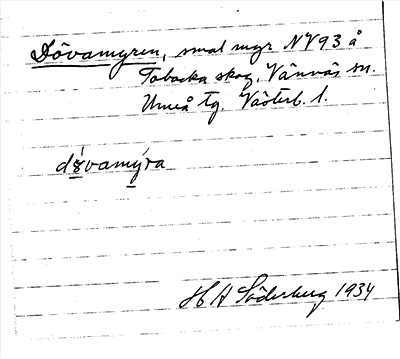 Dövamyren, smal myr NV93 å
Tobacka skog, Vännäs sn.
Umeå tg. Västerb. l.
d8̱́vamýra
H A Söderberg 1934